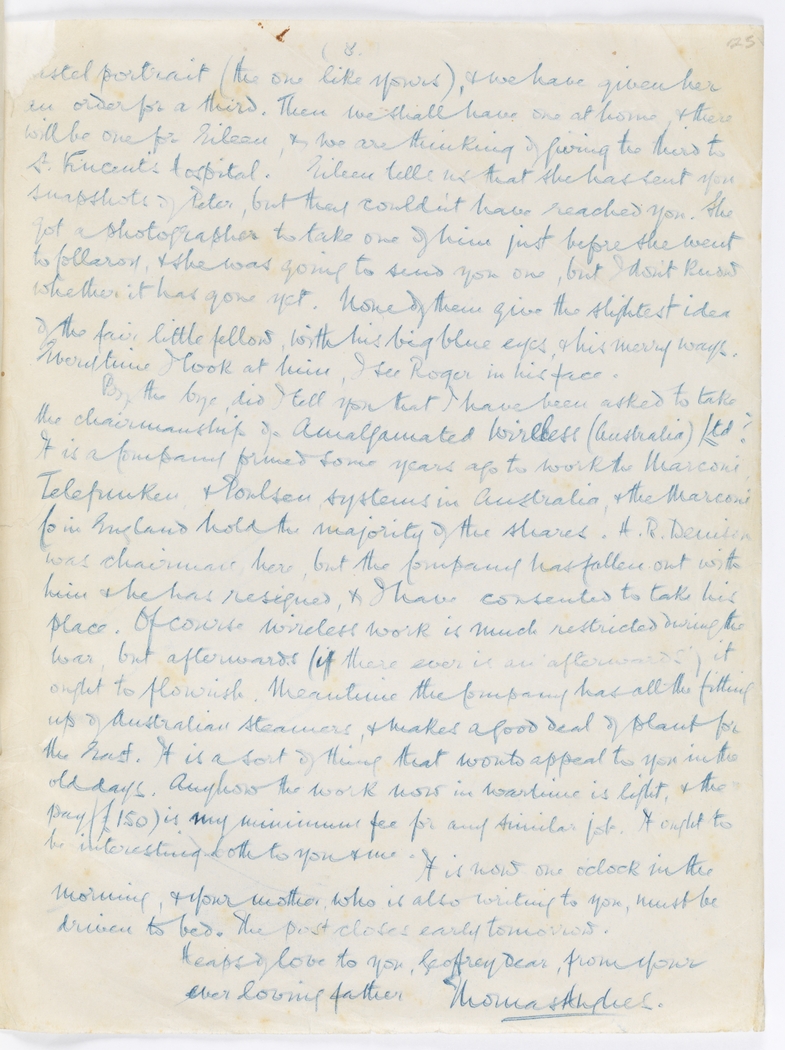 (3.
23
pastel portrait (the one like yours), & we have given her
an order for a third. Then we shall have one at home, & there
will be one for Eileen, & we are thinking of giving the third to
St. Vincent's Hospital. Eileen tells us that she has sent you
snapshots of Peter, but they couldn't have reached you. She
got a photographer to take one of him just before she went
to Collaroy, & she was going to send you one, but I don't know
whether it has gone yet. None of them give the slightest idea
of the fair little fellow, with his big blue eyes, & his merry ways.
Everytime I look at him, I see Roger in his face.
By the bye, did I tell you that I have been asked to take
the chairmanship of Amalgamated Wireless (Australia) Ltd?
It is a Company formed some years ago to work the Marconi,
Telefunken & Poulsen systems in Australia, & the Marconi
Co in England hold the majority of the shares. H.R. Denison
was chairman here, but the Company has fallen out with
him & he has resigned, & I have consented to take his
place. Of course wireless work is much restricted during the
war, but afterwards (if there ever is an "afterwards") it
ought to flourish. Meantime the Company has all the fitting
up of Australian steamers, & makes a good deal of plant for
the East. It is a sort of thing that would appeal to you in the
old days. Anyhow the work now in wartime is light, & the
pay (£150) is my minimum fee for any similar job. It ought to
be interesting both to you & me.
It is now one o'clock in the
morning, & your mother, who is also writing to you, must be
driven to bed. The post closes early tomorrow.
Heaps of love to you, Geoffrey dear, from your
ever loving father Thomas Hughes.